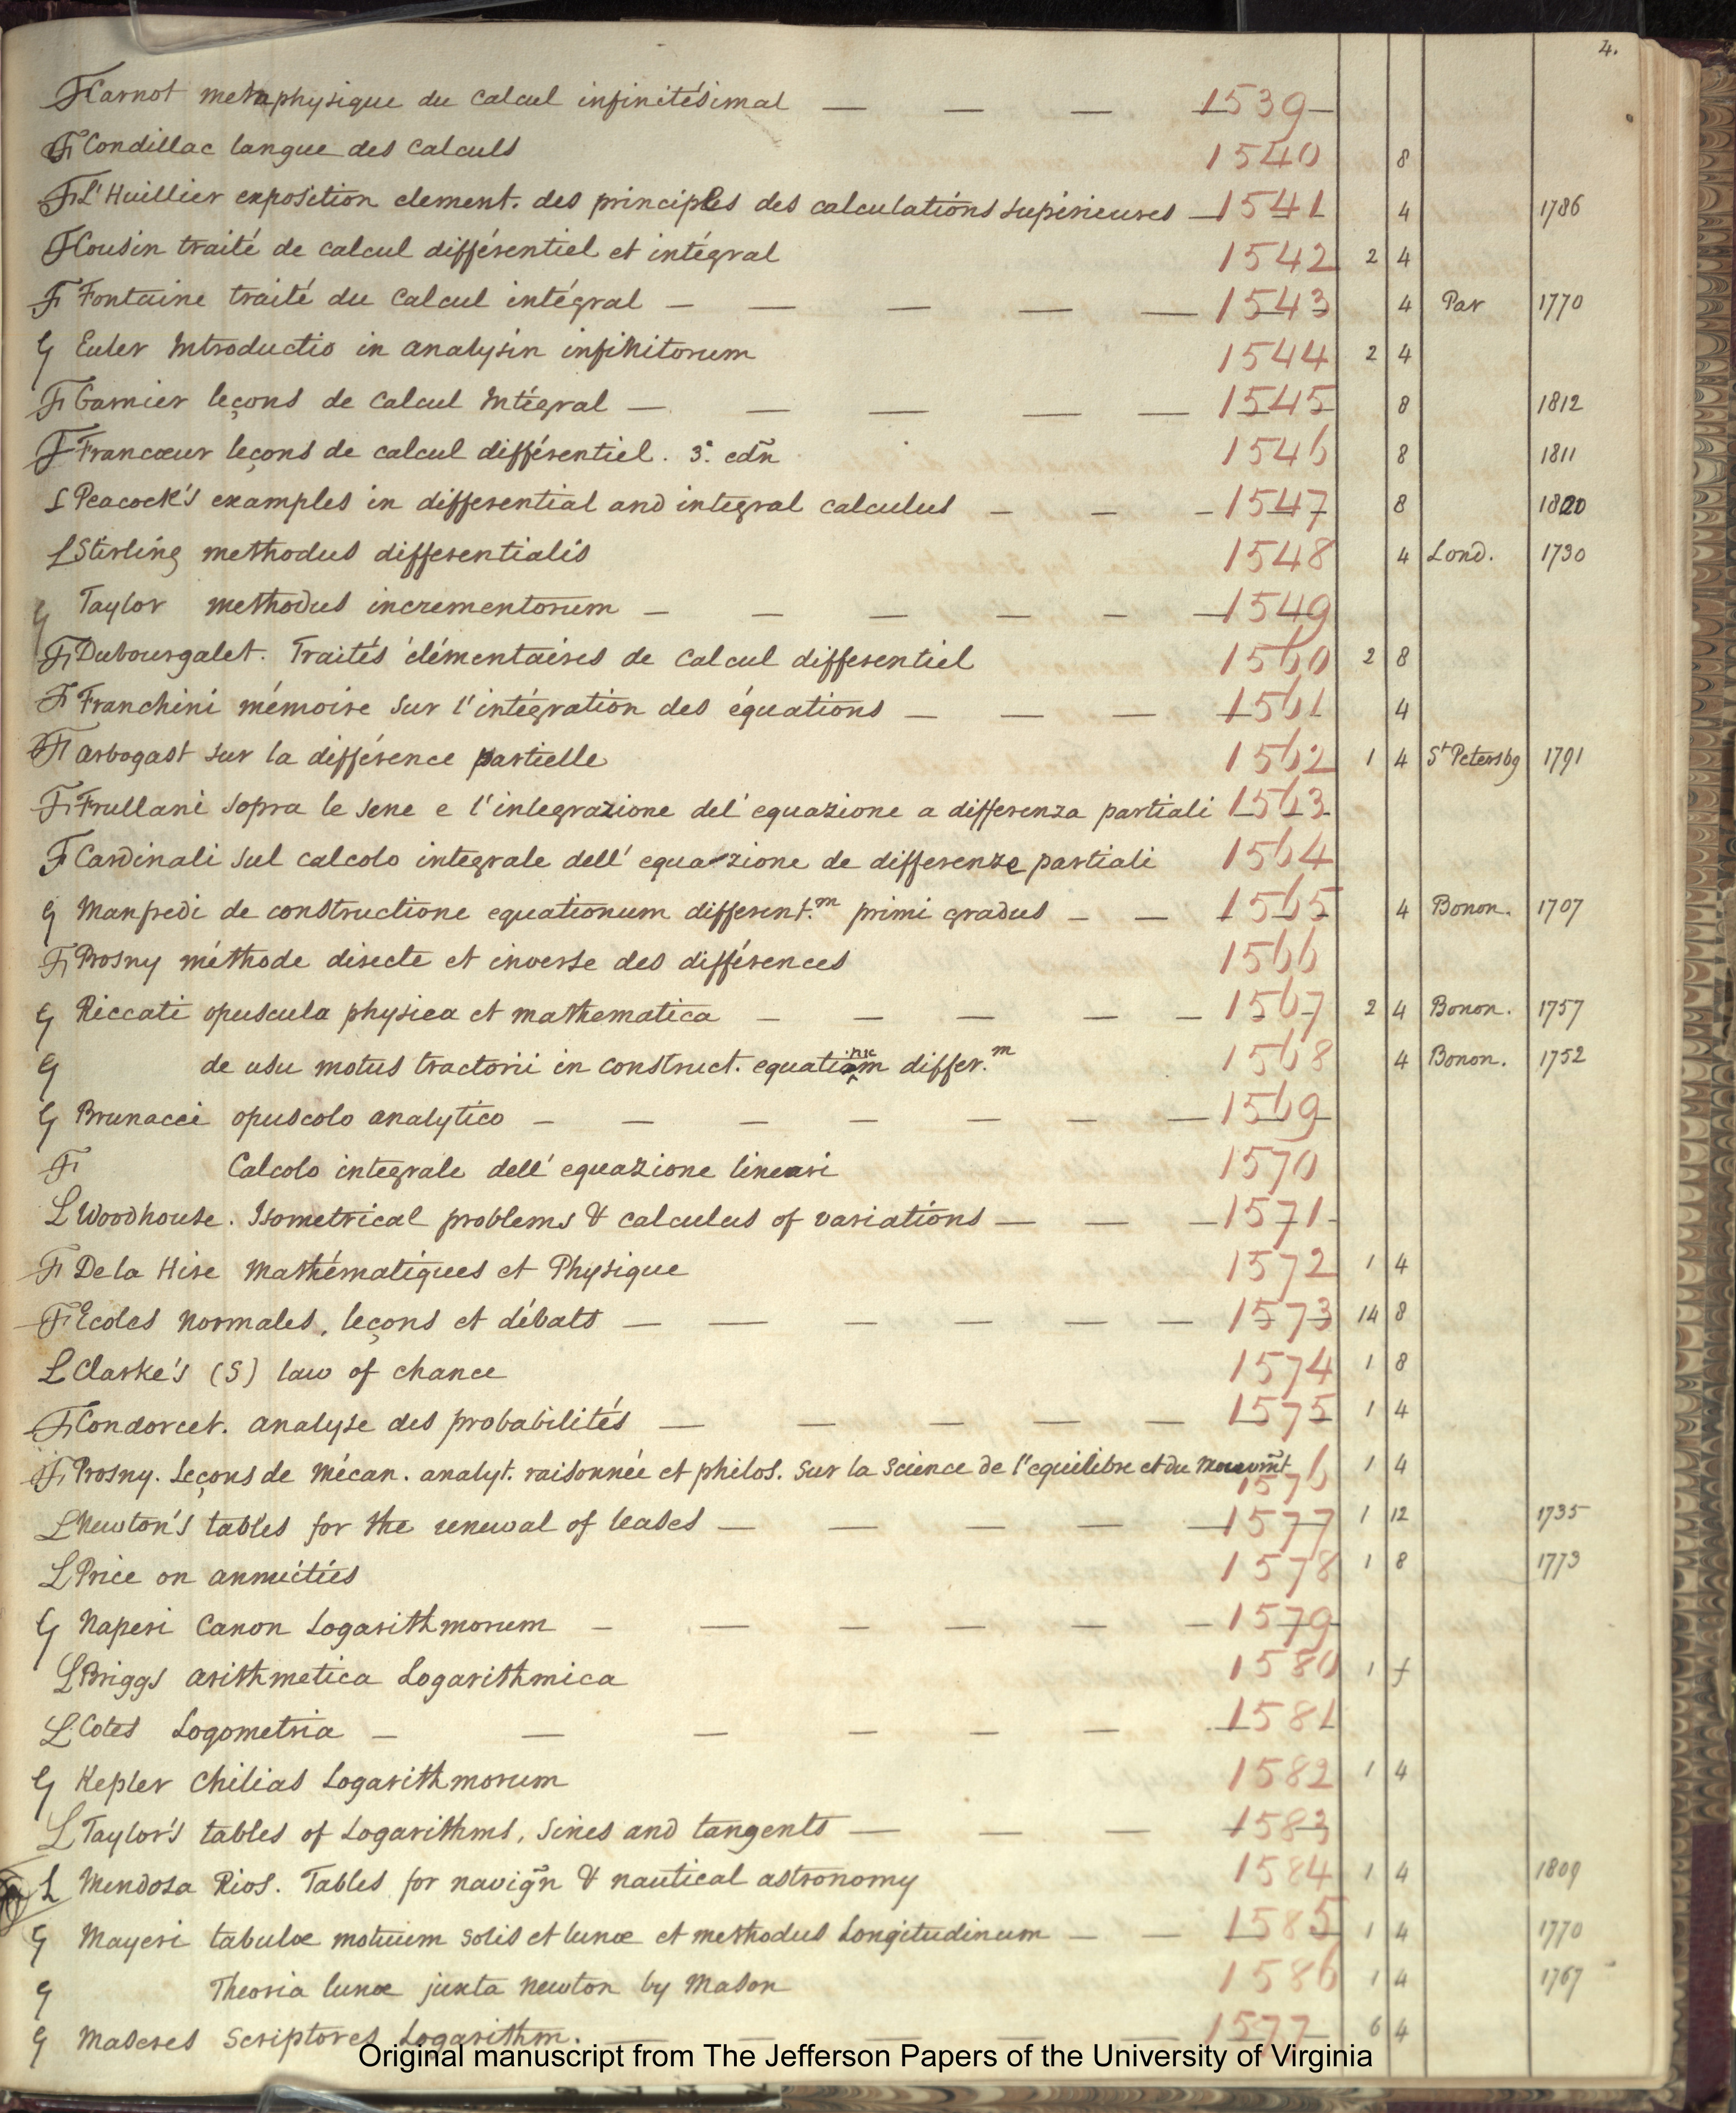 4.
F Carnot metaphysique du calcul infinitésimal — — — 1539
F Condillac langue des calculs 1540 8
F L'Huillier exposition element. des principles des calculations supérieures — 1541 4 1786
F Cousin traité de calcul différentiel et intégral 1542 2 4
F Fontaine traité du calcul intégral — — — — — 1543 4 Par 1770
G Euler Introductio in analysin infinitorum 1544 2 4
F Garnier leçons de calcul Intégral — — — — — 1545 8 1812
F Francœur leçons de calcul différentiel. 3e. edñ 1546 8 1811
L Peacock's examples in differential and integral calculus — — — 1547 8 1820
L Stirling methodus differentialis 1548 4 Lond. 1730
G Taylor methodus incrementorum — — — — — — 1549
F Dubourgalet. Traités élémentaires de calcul differentiel 1560 2 8
F Franchini mémoire sur l'intégration des équations — — — — 1561 4
F arbogast sur la différence partielle 1562 1 4 St Petersbg 1791
F Frullani sopra le sene e l'inlegrazione del' equazione a differenza partiali 1563
F Cardinali sul calcolo integrale dell' equazione de differenze partiali 1564
G Manfredi de constructione equationum different.m primi gradus — — 1565 4 Bonon. 1707
F Prosny méthode directe et inverse des différences 1566
G Riccati opuscula physica et mathematica — — — — — 1567 2 4 Bonon. 1757
G de usu motus tractorii in construct. equationem differ.m 1568 4 Bonon. 1752
G Brunacci opuscolo analytico — — — — — — — 1569
F Calcolo integrale dell' equazione lineari 1570
L Woodhouse. Isometrical problems & calculus of variations — — — 1571
F De la Hire Mathématiques et Physique 1572 1 4
F Ecoles Normales, leçons et débats — — — — — — 1573 14 8
L Clarke's (S) law of chance 1574 1 8
F Condorcet. analyse des probabilités — — — — — 1575 1 4
F Prosny. Leçons de Mécan. analyt. raisonnée et philos. sur la science de l'equilibre et du 1576 1 4
L Newton's tables for the renewal of leases — — — — — 1577 1 12 1735
L Price on annuities 1578 1 8 1773
G Naperi Canon Logarithmorum — — — — — — 1579
L Briggs arithmetica Logarithmica 1580 1 f
L Cotes Logometria — — — — — — — 1581
G Kepler Chilias Logarithmorum 1582 1 4
L Taylor's tables of Logarithms, Sines and tangents — — — 1583
L Mendoza Rios. Tables for navigñ & nautical astronomy 1584 1 4 1809
G Mayeri tabulæ motuum solis et lunæ et methodus Longitudinum — — 1585 1 4 1770
G Theoria lunæ juxta Newton by Mason 1586 1 4 1767
G Maseres Scriptores Logarithm. — — — — — 1577 6 4
Original manuscript from The Jefferson Papers of the University of Virginia